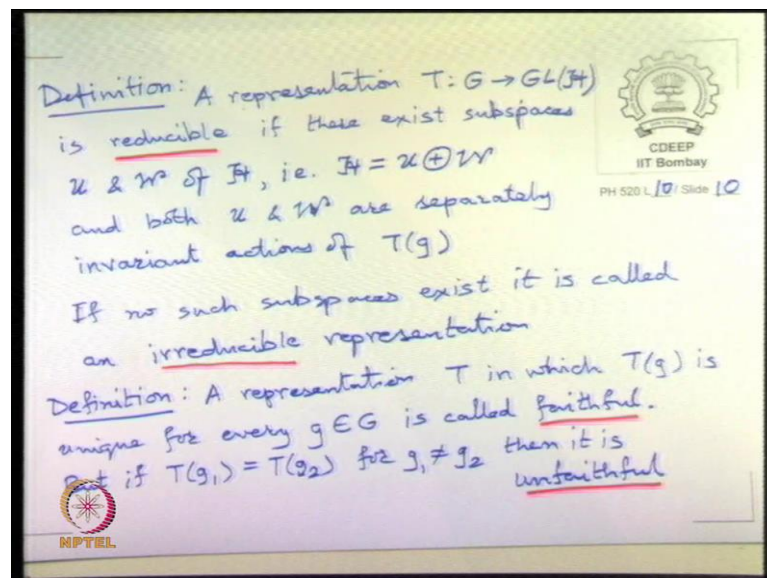 Definition: A representation T: G → GL(H)
is reducible if there exist subspaces
U & W of H, i.e. H = U ⊕ W
and both U & W are separately
invariant actions of T(g)
If no such subspaces exist it is called
an irreducible representation
Definition: A representation T in which T(g) is
unique for every g ∈ G is called faithful.
But if T(g₁) = T(g₂) for g₁ ≠ g₂ then it is
unfaithful
CDEEP
IIT Bombay
PH 520 L 10 / Slide 10
NPTEL